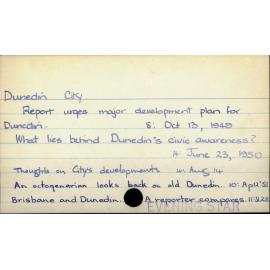 Dunedin City
Report urges major development plan for
Dunedin. 8: Oct 13, 1949
What lies behind Dunedin's civic awareness?
4 June 23, 1950
Thoughts on City's developments 4: Aug 14
An octogenarian looks back on old Dunedin. 10: Ap 12 '51
Brisbane and Dunedin. A reporter compares. 11:
EVENING STAR